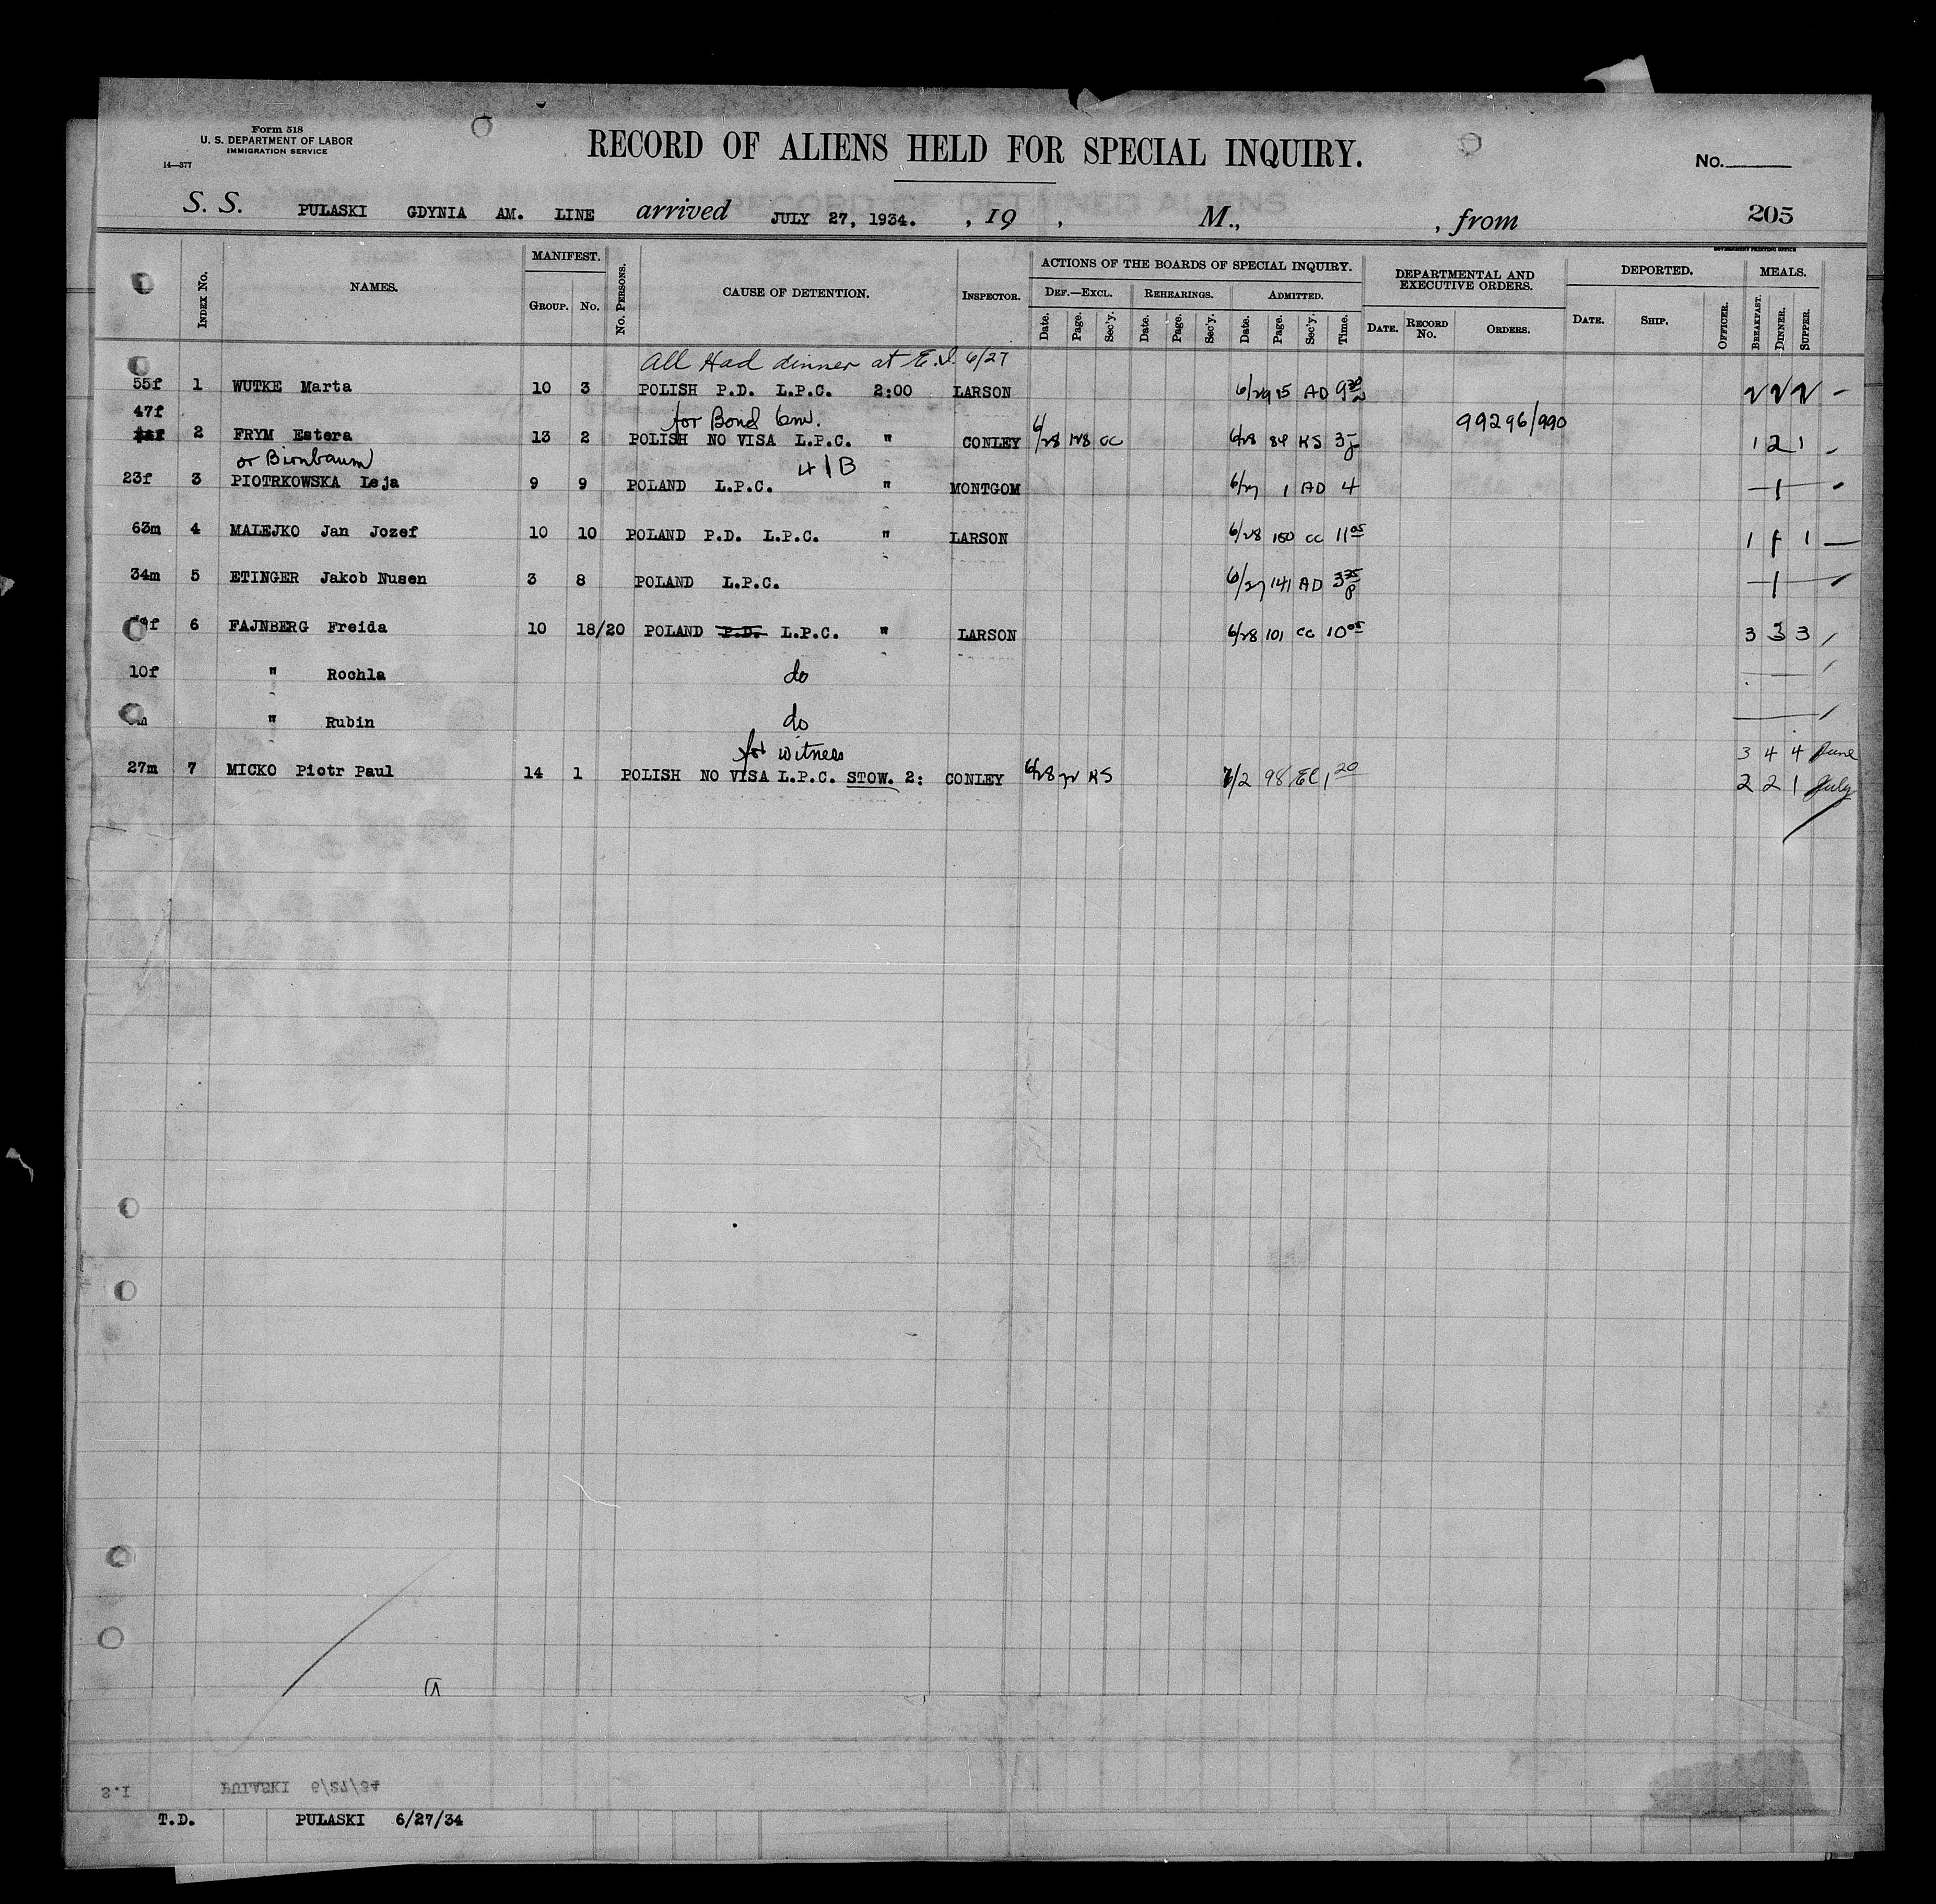 Form 518
U. S. DEPARTMENT OF LABOR
IMMIGRATION SERVICE
14—377
RECORD OF ALIENS HELD FOR SPECIAL INQUIRY.
No.
S. S. PULASKI GDYNIA AM. LINE arrived JULY 27, 1934. , 19 , M., , from
205
GOVERNMENT PRINTING OFFICE
INDEX No. NAMES. MANIFEST. GROUP. No. No. PERSONS. CAUSE OF DETENTION. INSPECTOR. ACTIONS OF THE BOARDS OF SPECIAL INQUIRY. DEPARTMENTAL AND EXECUTIVE ORDERS. DEPORTED. MEALS.
DEF.—EXCL. REHEARINGS. ADMITTED.
Date. Page. Sec'y. Date. Page. Sec'y. Date. Page. Sec'y. Time. DATE. RECORD No. ORDERS. DATE. SHIP. OFFICER. BREAKFAST. DINNER. SUPPER.
All Had dinner at E.I. 6/27
55f 1 WUTKE Marta 10 3 POLISH P.D. L.P.C. 2:00 LARSON 6/29 15 AD 9 30 2 2 2
47f for Bond 6m. 99296/990
2 FRYM Estera 13 2 POLISH NO VISA L.P.C. " CONLEY 6/28 128 CC 6/28 84 KS 3 1 2 1
or Birnbaum 4 1 B
23f 3 PIOTRKOWSKA Leja 9 9 POLAND L.P.C. " MONTGOM 6/27 1 AD 4 — 1 —
63m 4 MALEJKO Jan Jozef 10 10 POLAND P.D. L.P.C. " LARSON 6/28 150 CC 11 05 1 1 1
34m 5 ETINGER Jakob Nusen 3 8 POLAND L.P.C. 6/27 141 AD 3 35 P — 1 —
6 FAJNBERG Freida 10 18/20 POLAND P.D. L.P.C. " LARSON 6/28 101 CC 10 05 3 3 3
10f " Rochla do
" Rubin do
for witness 3 4 4 June
27m 7 MICKO Piotr Paul 14 1 POLISH NO VISA L.P.C. STOW. 2: CONLEY 6/28 72 KS 7/2 98 EC 1 20 2 2 1 July
S.I PULASKI 6/27/34
T.D. PULASKI 6/27/34